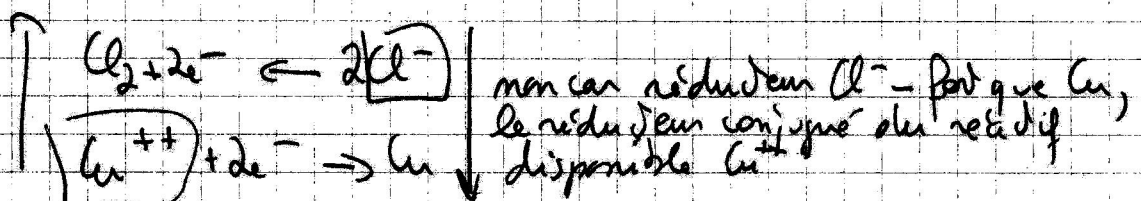 Cl₂ + 2e⁻ ← 2Cl⁻
Cu⁺⁺ + 2e⁻ → Cu
non car réducteur Cl⁻ - fort que Cu,
le réducteur conjugué du réactif
disponible Cu⁺⁺